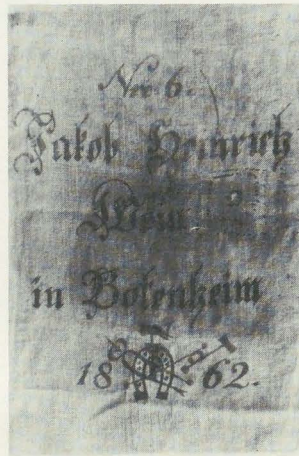 Nro 6.
Jakob Heinrich
Wein
in Botenheim
18 62.